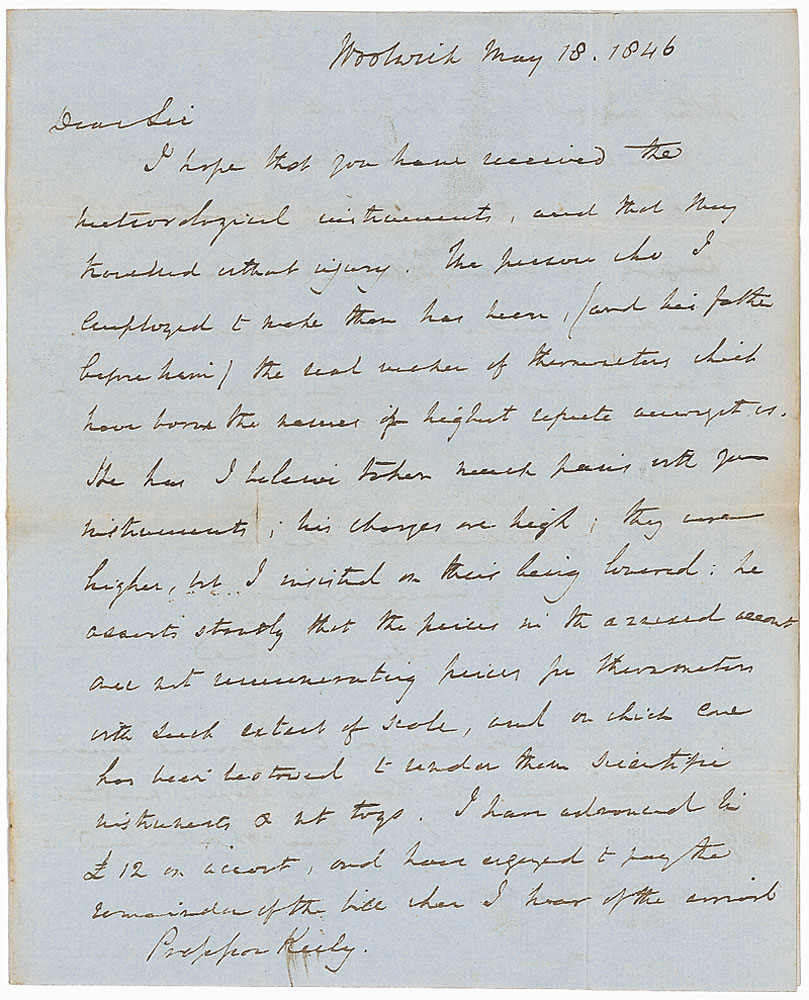 Woolwich May 18. 1846
Dear Sir
I hope that you have received the
meteorological instruments, and that they
travelled without injury. The person who I
employed to make them has been, (and his father
before him) the real maker of thermometers which
have borne the names of highest repute amongst us.
He has I believe taken much pains with your
instruments; his charges are high; they were
higher, but I insisted on their being lowered: he
asserts stoutly that the prices in the annexed account
are not remunerating prices for thermometers
with such extent of scale, and on which care
has been bestowed to render them scientific
instruments & not toys. I have advanced him
£12 on account, and have engaged to pay the
remainder of the bill when I hear of the arrival
Professor Keely.